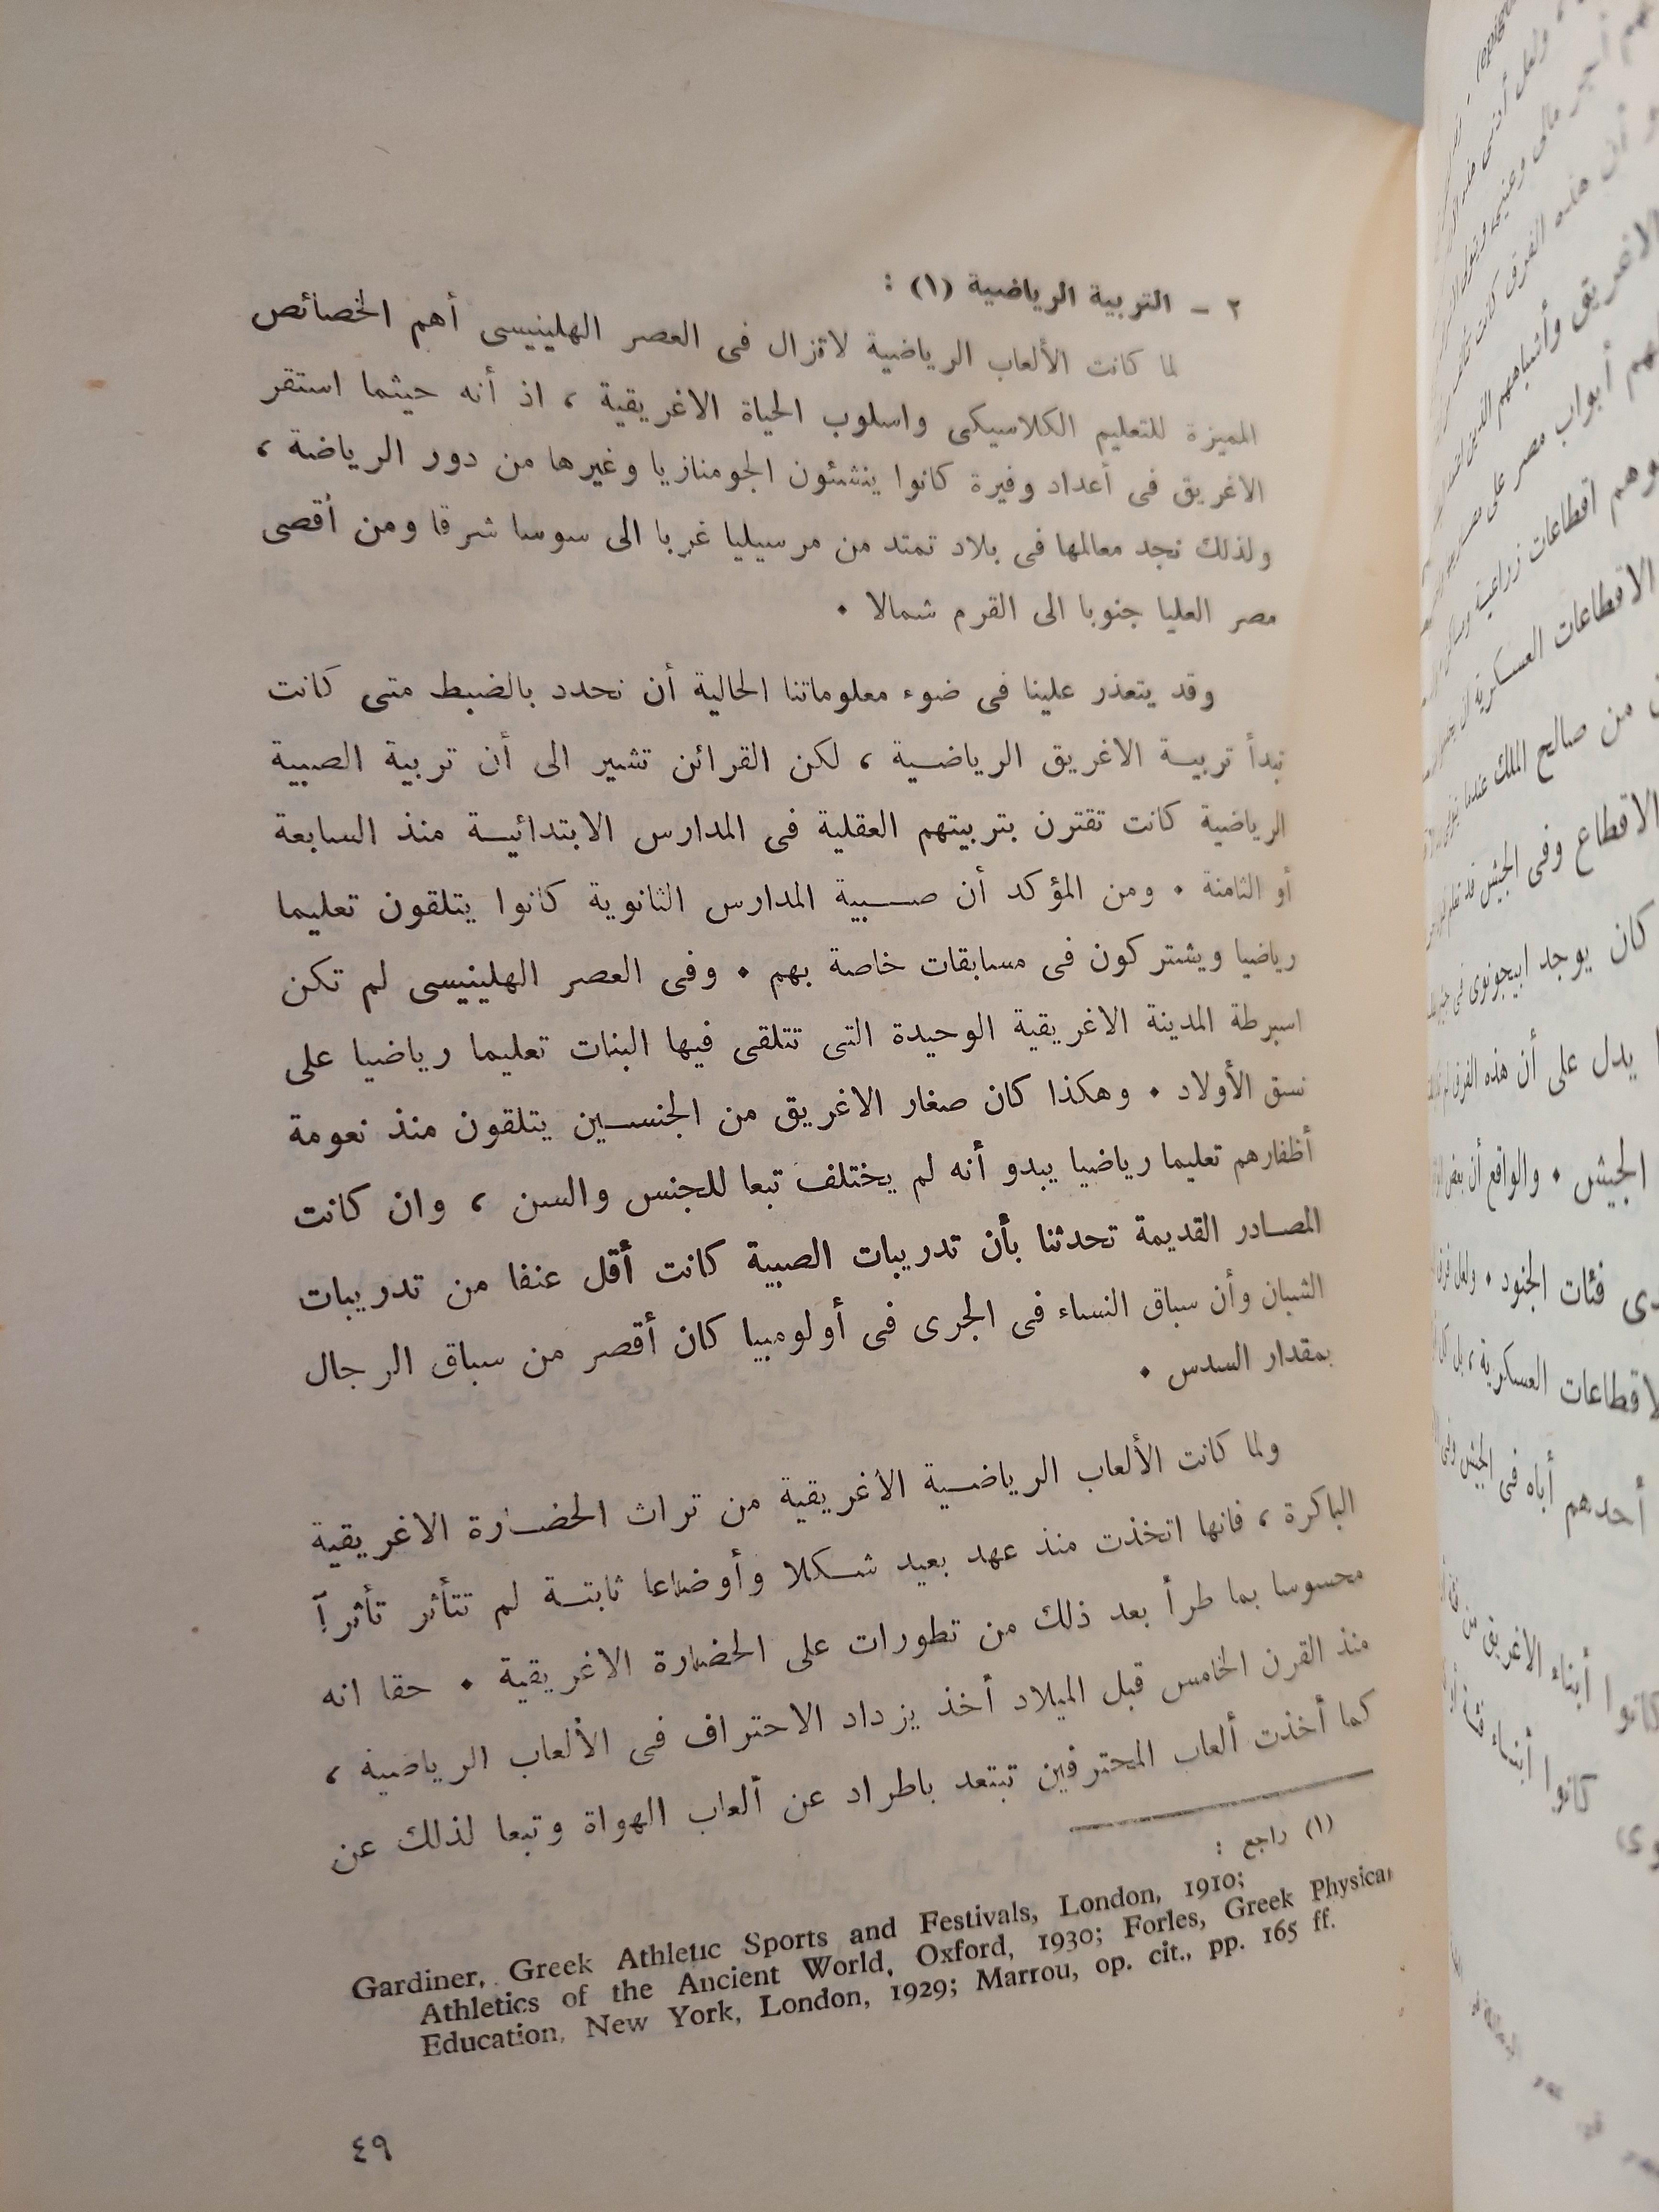 ٢ ــ التربية الرياضية (١) :
لما كانت الألعاب الرياضية لاتزال فى العصر الهلينيسى أهم الخصائص
المميزة للتعليم الكلاسيكى واسلوب الحياة الاغريقية ، اذ أنه حيثما استقر
الاغريق فى أعداد وفيرة كانوا ينشئون الجومنازيا وغيرها من دور الرياضة ،
ولذلك نجد معالمها فى بلاد تمتد من مرسيليا غربا الى سوسا شرقا ومن أقصى
مصر العليا جنوبا الى القرم شمالا .
وقد يتعذر علينا فى ضوء معلوماتنا الحالية أن نحدد بالضبط متى كانت
تبدأ تربيــة الاغريق الرياضــية ، لكن القرائن تشير الى أن تربية الصبية
الرياضية كانت تقترن بتربيتهم العقلية فى المدارس الابتدائيــة منذ السابعة
أو الثامنة . ومن المؤكد أن صــبية المدارس الثانوية كانوا يتلقون تعليما
رياضيا ويشتركون فى مسابقات خاصة بهم . وفى العصر الهلينيسى لم تكن
اسبرطة المدينة الاغريقية الوحيدة التى تتلقى فيها البنات تعليما رياضيا على
نسق الأولاد . وهكذا كان صغار الاغريق من الجنســين يتلقون منذ نعومة
أظفارهم تعليما رياضيا يبدو أنه لم يختلف تبعا للجنس والسن ، وان كانت
المصــادر القديمة تحدثنا بأن تدريبات الصبية كانت أقل عنفا من تدريبات
الشبان وأن سباق النساء فى الجرى فى أولومبيا كان أقصر من سباق الرجال
بمقدار السدس .
ولما كانت الألعاب الرياضــية الاغريقية من تراث الحضــارة الاغريقية
الباكرة ، فانها اتخذت منذ عهد بعيد شــكلا وأوضاعا ثابتــة لم تتأثر تأثرآ
محسوسا بما طرأ بعد ذلك من تطورات على الحضارة الاغريقية . حقا انه
منذ القرن الخامس قبل الميلاد أخذ يزداد الاحتراف فى الألعاب الرياضية ،
كما أخذت ألعاب المحترفين تبتعد باطراد عن ألعاب الهواة وتبعا لذلك عن
(١) راجع :
Gardiner, Greek Athletic Sports and Festivals, London, 1910;
Athletics of the Ancient World, Oxford, 1930; Forles, Greek Physical
Education, New York, London, 1929; Marrou, op. cit., pp. 165 ff.
٤٩
أبواب مصر على
اقطاعات زراعية
الاقطاعات العسكرية
من صالح الملك عندما
الاقطاع وفى الجيش
كان يوجد ابيجونوى فى
يدل على أن هذه الفرق
الجيش . والواقع أن بعض
فئات الجنود .
الاقطاعات العسكرية ، بل كان
أحدهم أباه فى الجيش
كانوا أبناء الاغريق من
كانوا أبناء